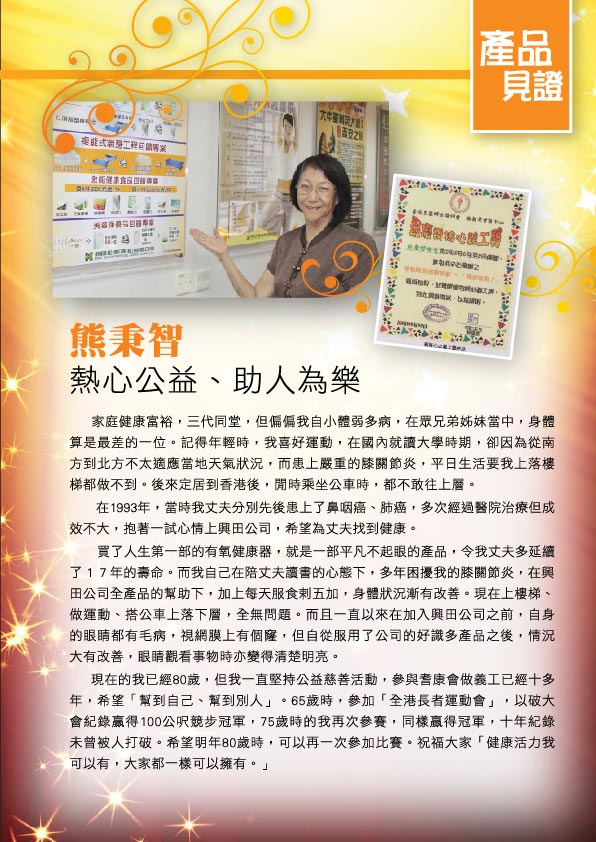 產品
見證
複能式氣身工程回饋專案
宏能健康食品回饋專案
熊秉智
熱心公益、助人為樂
家庭健康富裕，三代同堂，但偏偏我自小體弱多病，在眾兄弟姊妹當中，身體
算是最差的一位。記得年輕時，我喜好運動，在國內就讀大學時期，卻因為從南
方到北方不太適應當地天氣狀況，而患上嚴重的膝關節炎，平日生活要我上落樓
梯都做不到。後來定居到香港後，閒時乘坐公車時，都不敢往上層。
在1993年，當時我丈夫分別先後患上了鼻咽癌、肺癌，多次經過醫院治療但成
效不大，抱著一試心情上興田公司，希望為丈夫找到健康。
買了人生第一部的有氧健康器，就是一部平凡不起眼的產品，令我丈夫多延續
了１７年的壽命。而我自己在陪丈夫讀書的心態下，多年困擾我的膝關節炎，在興
田公司全產品的幫助下，加上每天服食刺五加，身體狀況漸有改善。現在上樓梯、
做運動、搭公車上落下層，全無問題。而且一直以來在加入興田公司之前，自身
的眼睛都有毛病，視網膜上有個窿，但自從服用了公司的好識多產品之後，情況
大有改善，眼睛觀看事物時亦變得清楚明亮。
現在的我已經80歲，但我一直堅持公益慈善活動，參與耆康會做義工已經十多
年，希望「幫到自己、幫到別人」。65歲時，參加「全港長者運動會」，以破大
會紀錄贏得100公呎競步冠軍，75歲時的我再次參賽，同樣贏得冠軍，十年紀錄
未曾被人打破。希望明年80歲時，可以再一次參加比賽。祝福大家「健康活力我
可以有，大家都一樣可以擁有。」